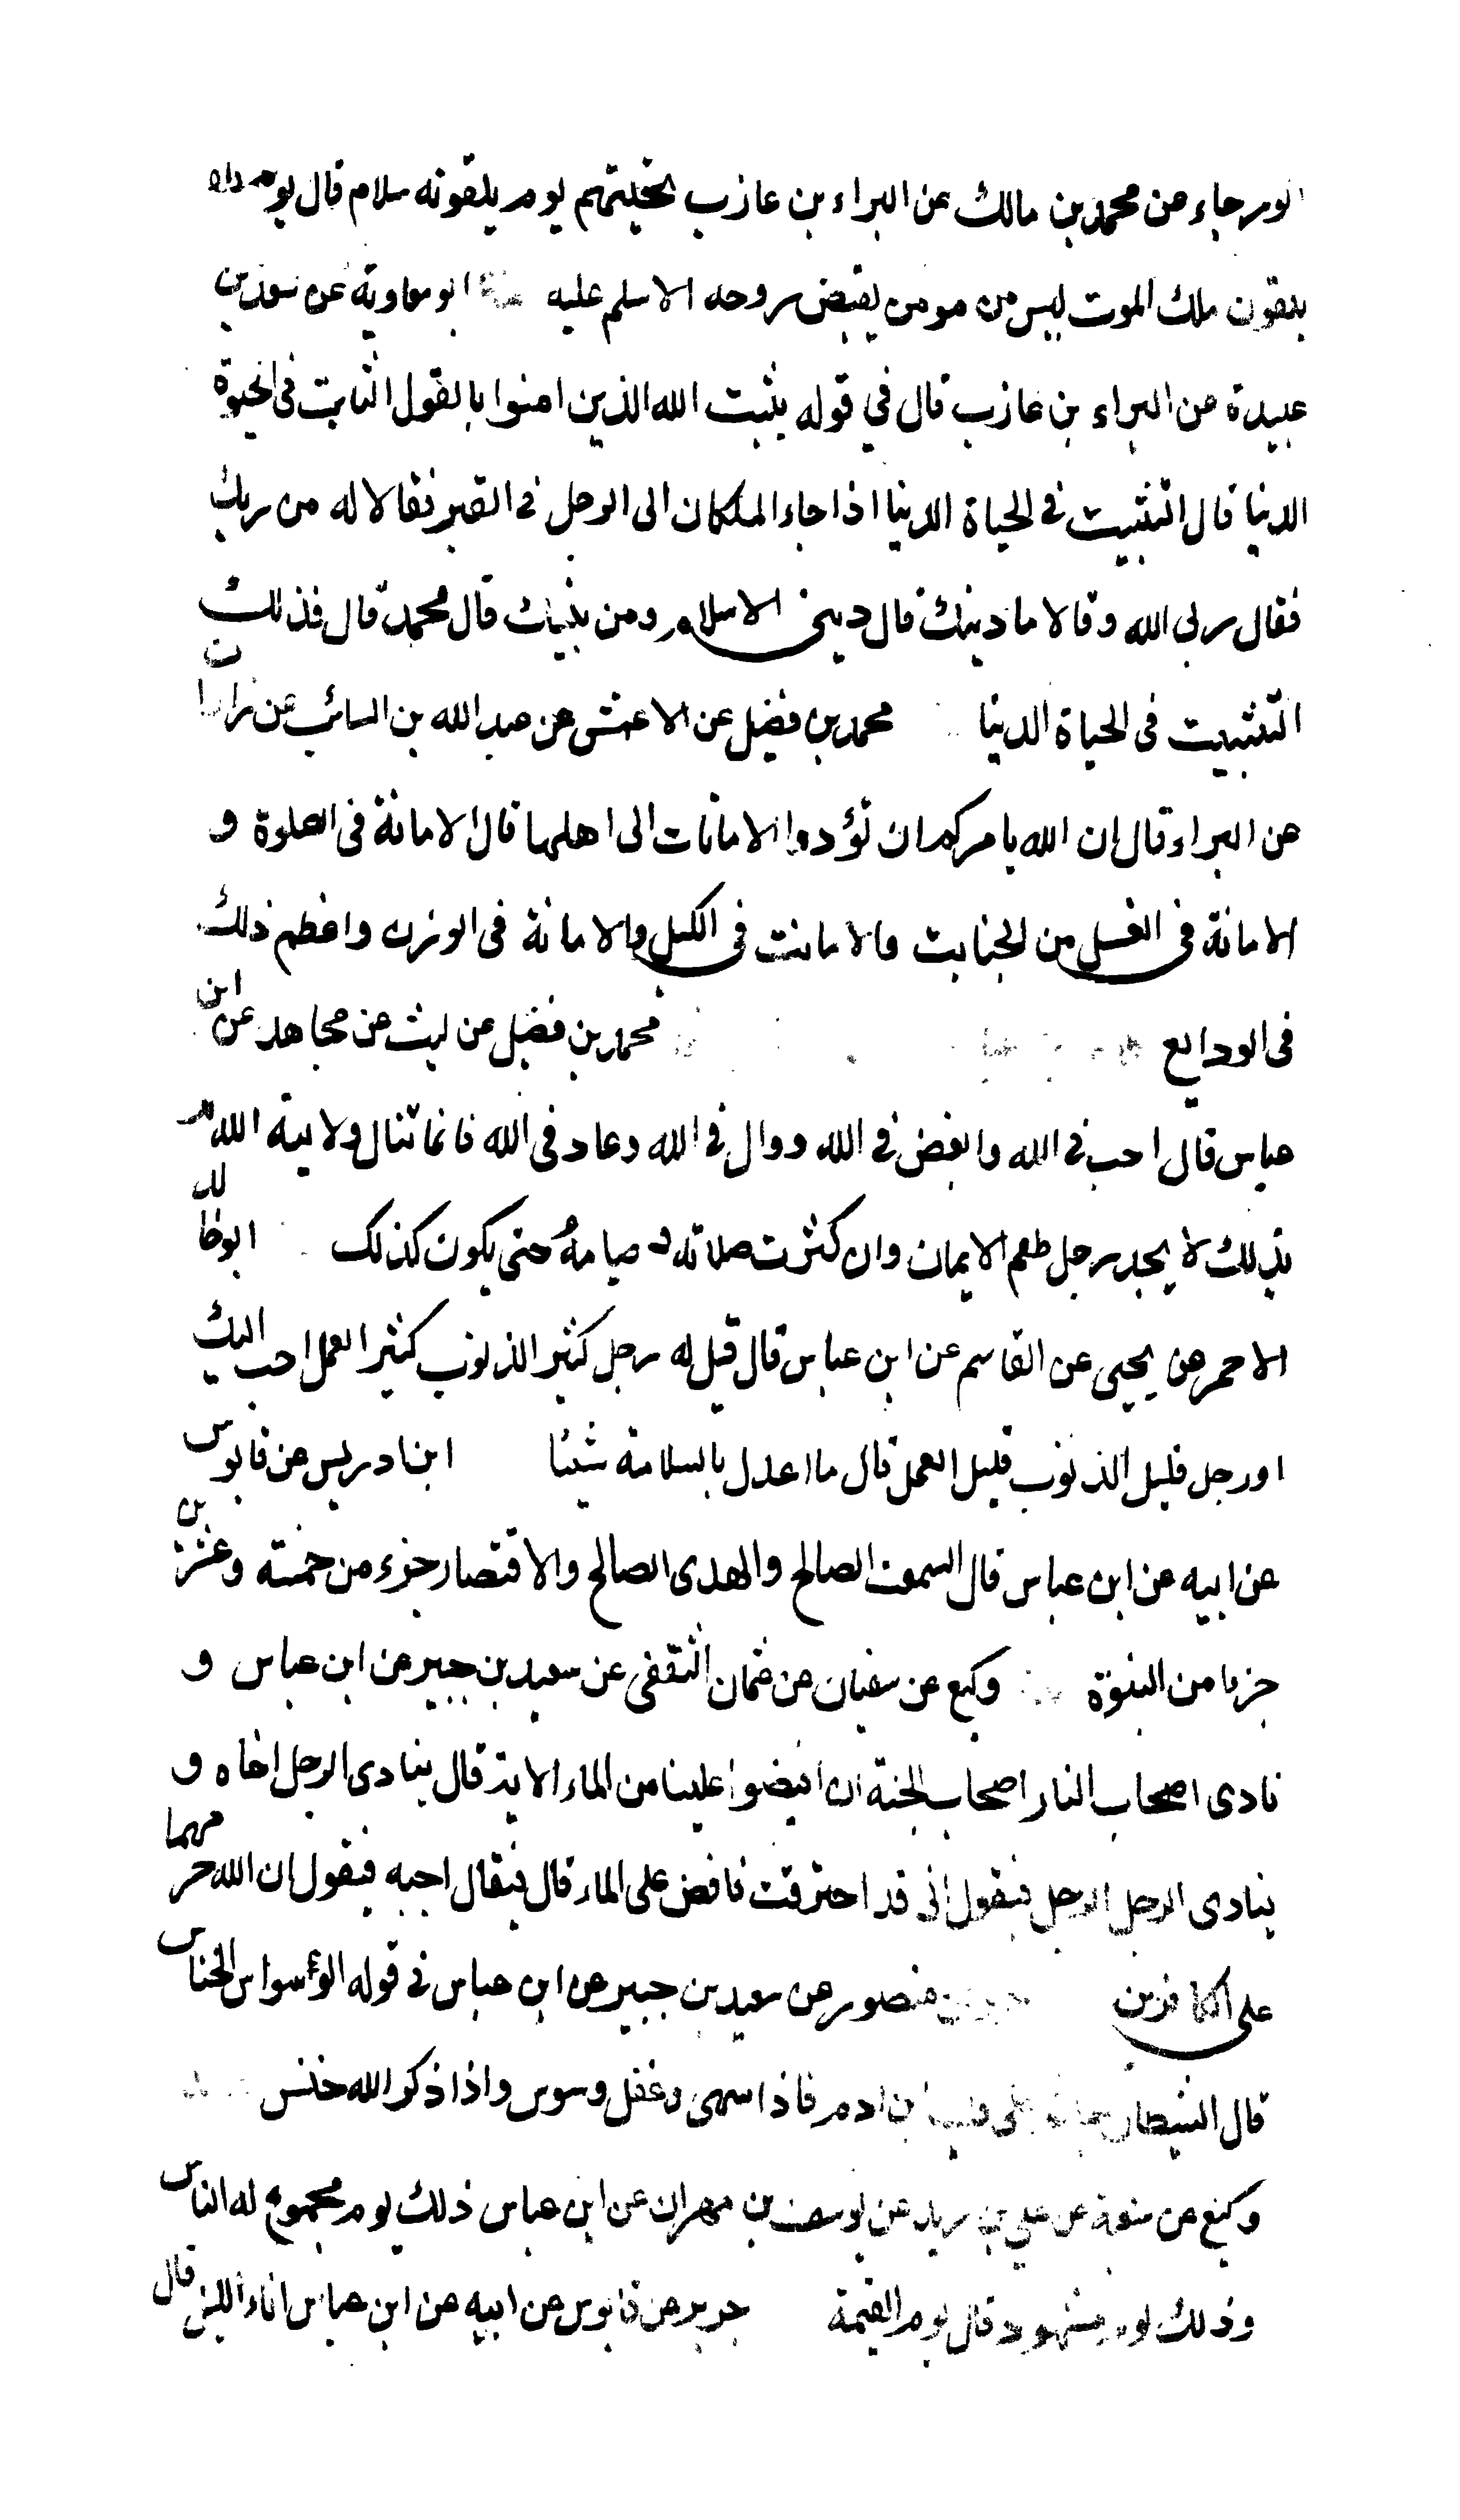 ابو رجاء عن محمد بن مالك عن البراء بن عازب تحيتهم يوم يلقونه سلام قال يوم
يلقون ملك الموت ليس من مومن يقبض روحه الا سلم عليه ابو معاوية عن سعد بن
عبيدة عن البراء بن عازب قال في قوله يثبت الله الذين امنوا بالقول الثابت فى الحيوة
الدنيا قال التثبيت فى الحياة الدنيا اذا جاء الملكان الى الرجل فى القبر فقالا له من ربك
فقال ربى الله وقالا ما دينك قال دينى الاسلام ومن نبيك قال محمد قال فذلك
التثبيت فى الحياة الدنيا محمد بن فضيل عن الاعمش عن عبد الله بن السائب عن زاذان
عن البراء قال ان الله يامركم ان تؤدوا الامانات الى اهلها قال الامانة فى الصلوة و
الامانة فى الغسل من الجنابت والامانت فى الكيل والامانة فى الوزن واعظم ذلك
فى الودايع محمد بن فضيل عن ليث عن مجاهد عن ابن
عباس قال احب فى الله وابغض فى الله ووال فى الله وعاد فى الله فانما تنال ولاية الله
بذلك لا يجد رجل طعم الايمان وان كثرت صلاته و صيامهُ حتى يكون كذلك ابو خالد
الاحمر عن يحيى عن القاسم عن ابن عباس قال قيل له رجل كثير الذنوب كثير العمل احب اليك
اورجل قليل الذنوب قليل العمل قال ما اعدل بالسلامة شيئا ابن ادريس عن قابوس
عن ابيه عن ابن عباس قال السمت الصالح والهدى الصالح والاقتصار جزء من خمسة وعشرين
جزءا من النبوة وكيع عن سفيان عن عثمان الثقفى عن سعيد بن جبير عن ابن عباس و
نادى اصحاب النار اصحاب الجنة ان افيضوا علينا من الماء الاية قال ينادى الرجل اخاه و
ينادى الرجل الرجل فيقول انى قد احترقت فافض على الماء قال فيقال اجبه فيقول ان الله حرمهما
على الكافرين منصور عن سعيد بن جبير عن ابن عباس فى قوله الوسواس الخناس
قال الشيطان جاثم على قلب ابن ادم فاذا سهى وغفل وسوس واذا ذكر الله خنس
وكيع عن شعبة عن على بن زيد عن يوسف بن مهران عن ابن عباس ذلك يوم مجموع له الناس
وذلك يوم مشهود قال يوم القيمة جرير عن قابوس عن ابيه عن ابن عباس اناء الليل قال